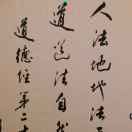 人法地地法天
道道法自然
道德經第二十